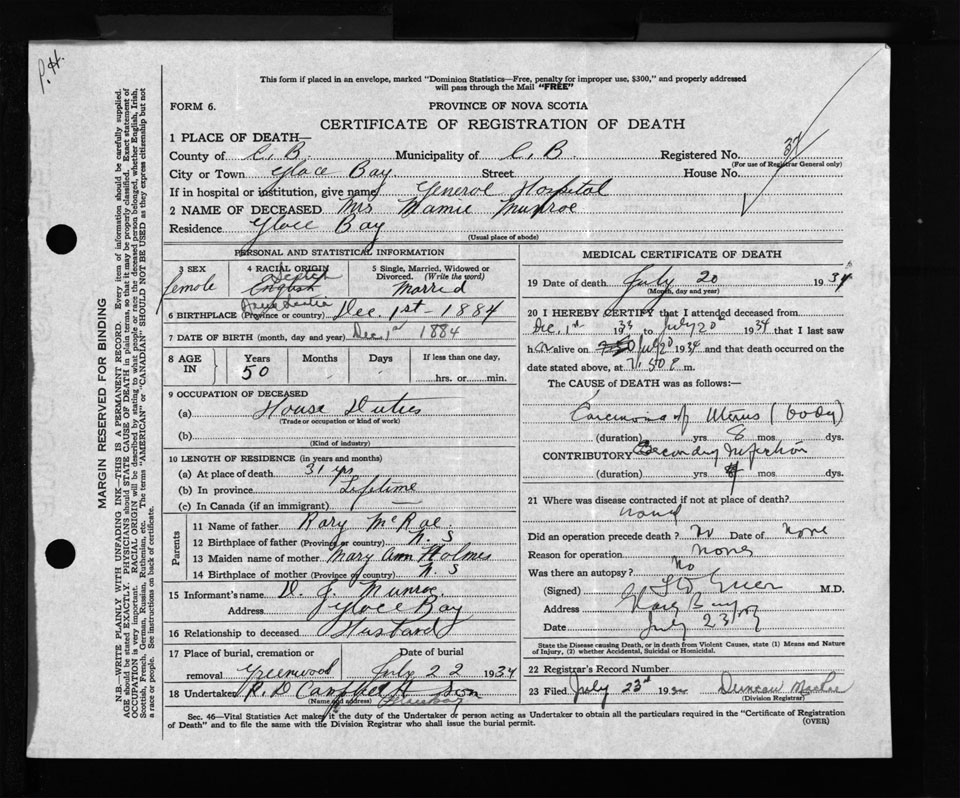 P.H.
This form if placed in an envelope, marked "Dominion Statistics—Free, penalty for improper use, $300," and properly addressed
will pass through the Mail "FREE"
FORM 6.
PROVINCE OF NOVA SCOTIA
CERTIFICATE OF REGISTRATION OF DEATH
1 PLACE OF DEATH—
County of C. B. Municipality of C. B. Registered No. 37
(For use of Registrar General only)
City or Town Glace Bay Street House No.
If in hospital or institution, give name General Hospital
2 NAME OF DECEASED Mrs Mamie Munroe
Residence Glace Bay
(Usual place of abode)
PERSONAL AND STATISTICAL INFORMATION
3 SEX female
4 RACIAL ORIGIN Scotch English
5 Single, Married, Widowed or Divorced. (Write the word) Married
6 BIRTHPLACE (Province or country) Nova Scotia Dec. 1st - 1884
7 DATE OF BIRTH (month, day and year) Dec. 1st 1884
8 AGE IN Years 50 Months Days If less than one day,
hrs. or min.
9 OCCUPATION OF DECEASED
(a) House Duties
(Trade or occupation or kind of work)
(b)
(Kind of industry)
10 LENGTH OF RESIDENCE (in years and months)
(a) At place of death 31 yrs
(b) In province Lifetime
(c) In Canada (if an immigrant)
Parents
11 Name of father Rory McRae
12 Birthplace of father (Province or country) N. S
13 Maiden name of mother Mary Ann Holmes
14 Birthplace of mother (Province or country) N. S
15 Informant's name D. J. Munroe
Address Glace Bay
16 Relationship to deceased Husband
17 Place of burial, cremation or removal Greenwood Date of burial July 22 1934
18 Undertaker R. D Campbell & Son
(Name and address) Glace Bay
MEDICAL CERTIFICATE OF DEATH
19 Date of death July 20 1934
(Month, day and year)
20 I HEREBY CERTIFY that I attended deceased from
Dec. 1st 1933 to July 20th 1934 that I last saw
her alive on July 20 1934 and that death occurred on the
date stated above, at 7.50 P. m.
The CAUSE of DEATH was as follows:
Carcinoma of Uterus (body)
(duration) yrs 8 mos. dys.
CONTRIBUTORY Secondary Infection
(duration) yrs mos. dys.
21 Where was disease contracted if not at place of death?
Did an operation precede death? No Date of none
Reason for operation none
Was there an autopsy? No
(Signed) M.D.
Address Glace Bay
Date July 23
State the Disease causing Death, or in death from Violent Causes, state (1) Means and Nature
of Injury, (2) whether Accidental, Suicidal or Homicidal.
22 Registrar's Record Number
23 Filed July 23rd 1934 Duncan MacRae
(Division Registrar)
Sec. 46—Vital Statistics Act makes it the duty of the Undertaker or person acting as Undertaker to obtain all the particulars required in the "Certificate of Registration
of Death" and to file the same with the Division Registrar who shall issue the burial permit. (OVER)
MARGIN RESERVED FOR BINDING
N.B.—WRITE PLAINLY WITH UNFADING INK—THIS IS A PERMANENT RECORD. Every item of information should be carefully supplied.
AGE should be stated EXACTLY. PHYSICIANS should STATE CAUSE OF DEATH in plain terms, so that it may be properly classified. Exact statement of
OCCUPATION is very important. RACIAL ORIGIN will be described by stating to what people or race the deceased person belonged, whether English, Irish,
Scottish, French, German, Russian, Ruthenian, etc. The terms "AMERICAN" or "CANADIAN" SHOULD NOT BE USED as they express citizenship but not
a race or people. See instructions on back of certificate.